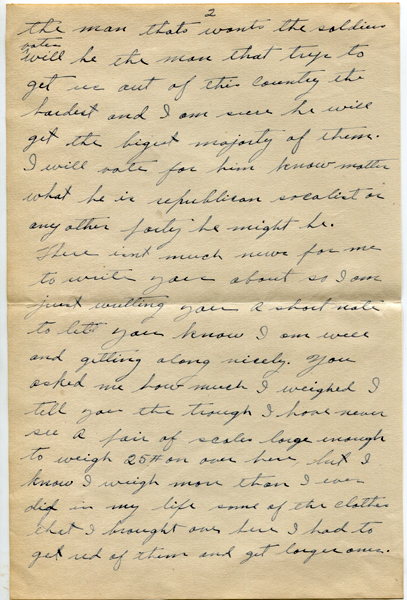 2
the man thats wants the soldiers
votes
will be the man that trys to
get us out of this country the
hardest and I am sure he will
get the bigest majority of them.
I will vote for him know matter
what he is republican socalist or
any other party he might be.
There isnt much news for me
to write you about so I am
just writting you a short note
to let you know I am well
and getting along nicely. You
asked me how much I weighed I
tell you the trough I have never
see a pair of scales large enough
to weigh 25# on over here but I
know I weigh more than I ever
did in my life some of the clothes
that I brought over here I had to
get red of them and get larger ones.